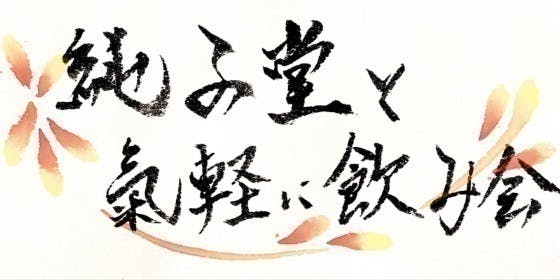 純子堂と
氣軽に飲み会